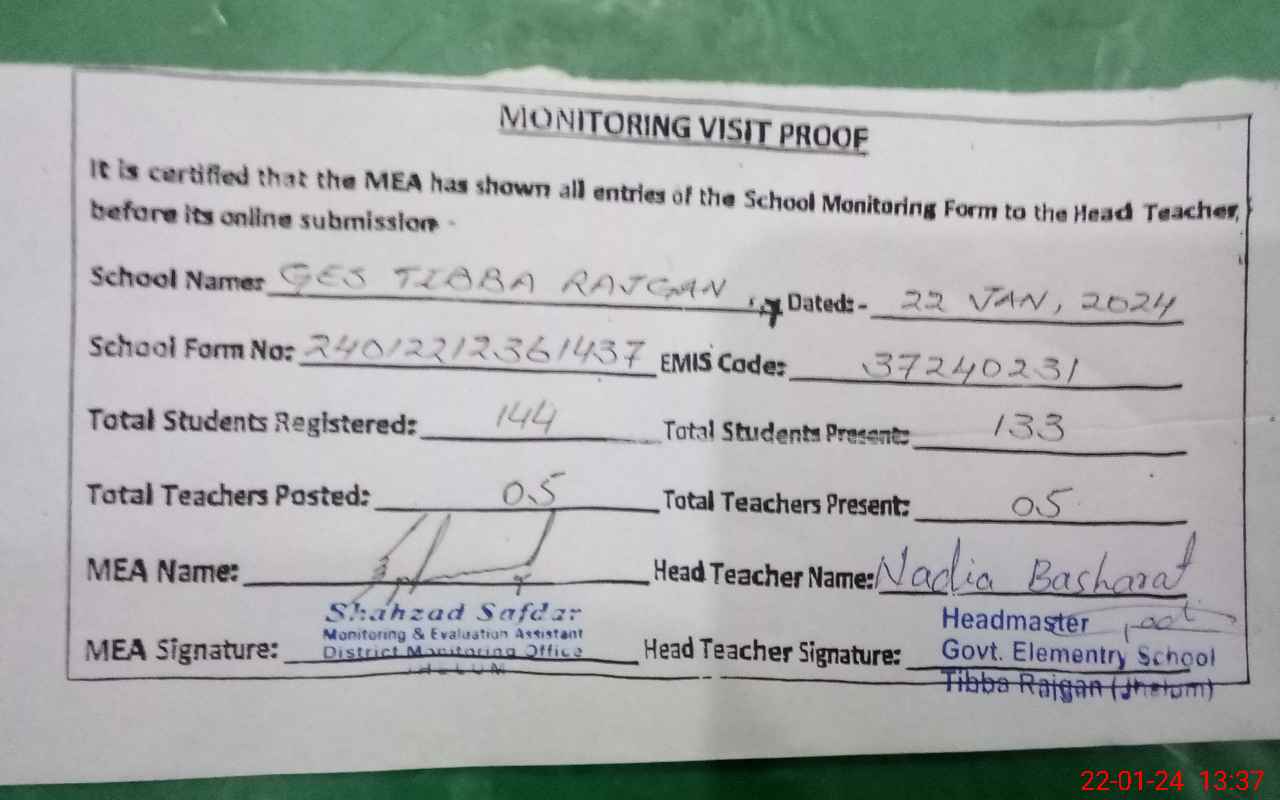 MONITORING VISIT PROOF
It is certified that the MEA has shown all entries of the School Monitoring Form to the Head Teacher,
before its online submission -
School Name: GES TIBBA RAJGAN Dated:- 22 JAN, 2024
School Form No: 24012212361437 EMIS Code: 37240231
Total Students Registered: 144 Total Students Present: 133
Total Teachers Posted: 05 Total Teachers Present: 05
MEA Name: Head Teacher Name: Nadia Basharat
Shahzad Safdar
Monitoring & Evaluation Assistant
District Monitoring Office
JHELUM
MEA Signature: Head Teacher Signature:
Headmaster
Govt. Elementry School
Tibba Rajgan (Jhelum)
22-01-24 13:37